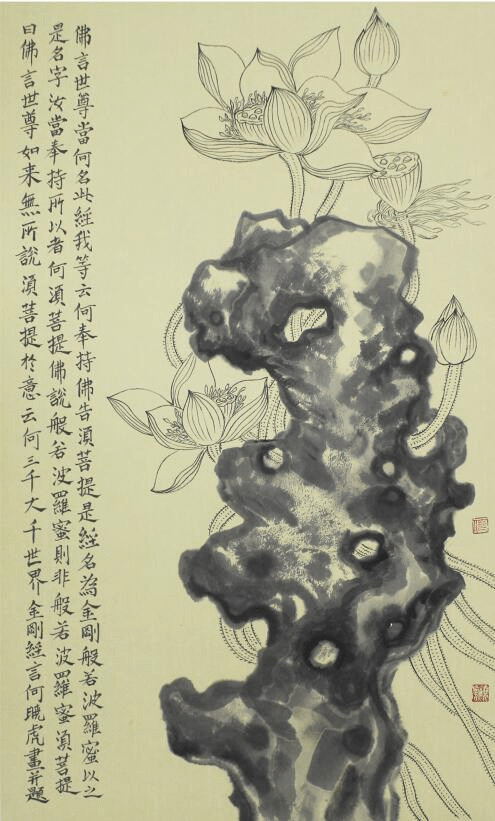 佛言世尊當何名此經我等云何奉持佛告湏菩提是經名為金剛般若波羅蜜以之
是名字汝當奉持所以者何湏菩提佛說般若波羅蜜則非般若波羅蜜湏菩提
曰佛言世尊如来無所說湏菩提於意云何三千大千世界金剛經言何曉虎畫并題